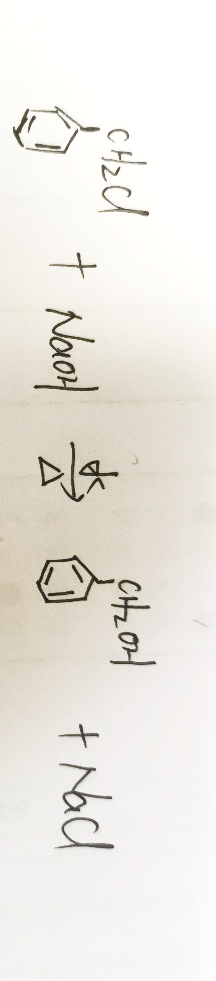 CH2Cl + NaOH 水 △ → CH2OH + NaCl